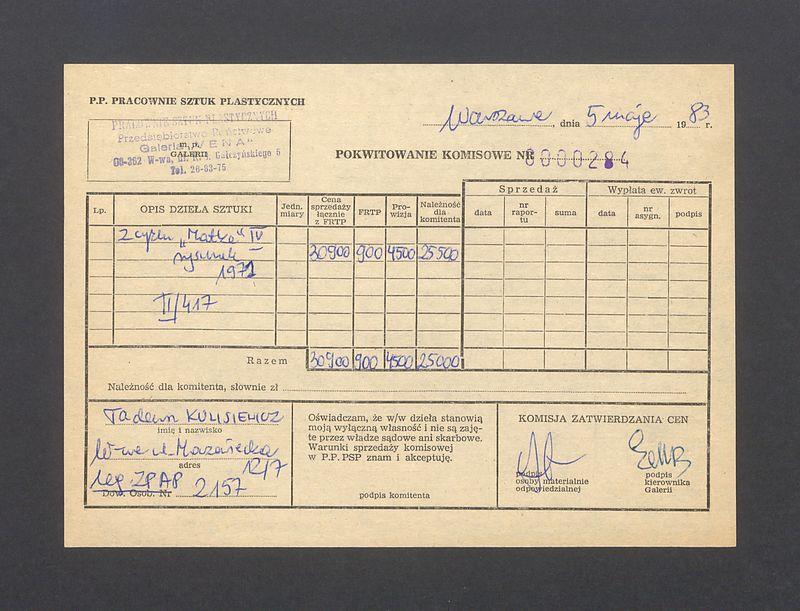 P.P. PRACOWNIE SZTUK PLASTYCZNYCH
PRACOWNIE SZTUK PLASTYCZNYCH
Przedsiębiorstwo Państwowe
Galeria „WENA"
m. p.
GALERII
00-362 W-wa, ul. K. I. Gałczyńskiego 5
Tel. 26-83-75
Warszawa, dnia 5 maja 1983 r.
POKWITOWANIE KOMISOWE NR 0000284
Lp. OPIS DZIEŁA SZTUKI Jedn. miary Cena sprzedaży łącznie z FRTP FRTP Pro-wizja Należność dla komitenta
Sprzedaż Wypłata ew. zwrot
data nr rapor-tu suma data nr asygn. podpis
z cyklu „Matka" IV
rysunek 30900 900 4500 25500
1971
II/417
Razem 30900 900 4500 25000
Należność dla komitenta, słownie zł
Tadeusz KULISIEWICZ
imię i nazwisko
W-wa ul. Mazowiecka
adres 12/7
leg. ZPAP
Dow. Osob. Nr 2157
Oświadczam, że w/w dzieła stanowią
moją wyłączną własność i nie są zaję-
te przez władze sądowe ani skarbowe.
Warunki sprzedaży komisowej
w P.P. PSP znam i akceptuję.
podpis komitenta
KOMISJA ZATWIERDZANIA CEN
podpis
osoby materialnie
odpowiedzialnej
podpis
kierownika
Galerii